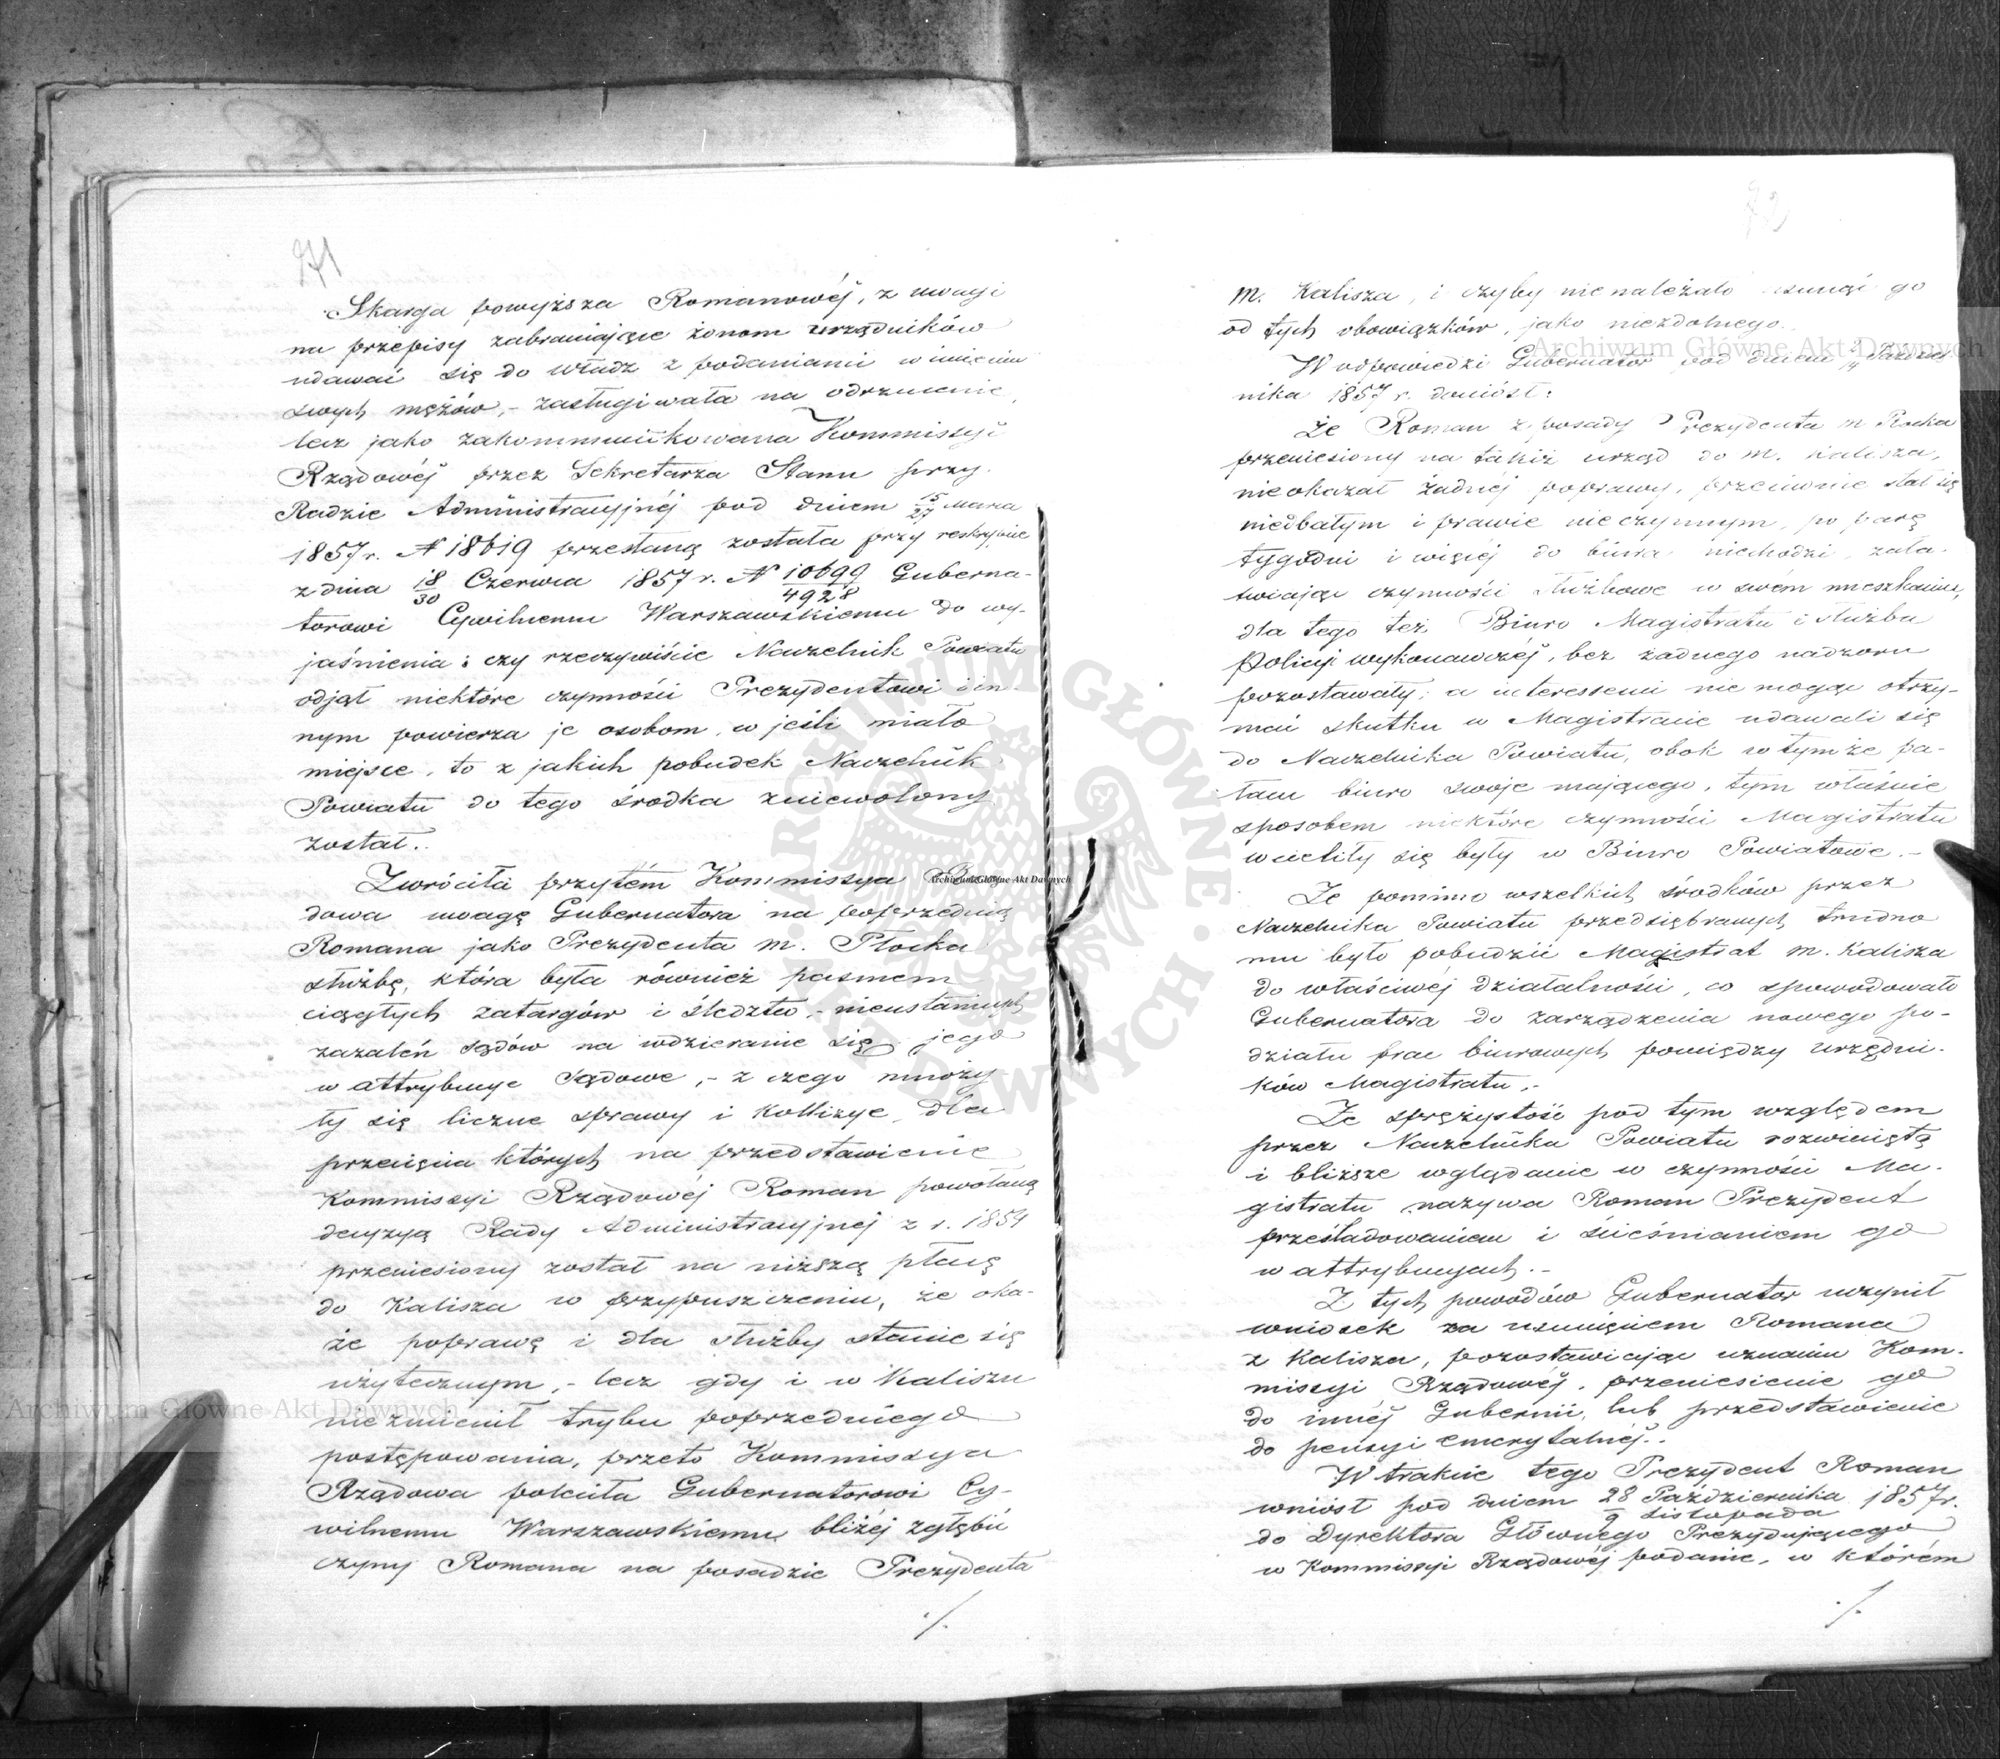 71
Skarga powyższa Romanowéj, z uwagi
na przepisy zabraniające żonom urzędników
udawać się do władz z podaniami w imieniu
swych mężów, - zasługiwała na odrzucenie,
lecz jako zakommunikowana Kommissyi
Rządowéj przez Sekretarza Stanu przy
Radzie Administracyjnéj pod dniem 15/27 Marca
1857 r. N 18619 przesłaną została przy reskrypcie
z dnia 18/30 Czerwca 1857 r. N 10699/4928 Guberna-
torowi Cywilnemu Warszawskiemu do wy-
jaśnienia: czy rzeczywiście Naczelnik Powiatu
odjął niektóre czynności Prezydentowi i in-
nym powierza je osobom, w jeśli miało
miejsce, to z jakich pobudek Naczelnik
Powiatu do tego środka zniewolony
został..
Zwróciła przytém Kommissya Rzą-
dowa uwagę Gubernatora na poprzednią
Romana jako Prezydenta m. Płocka
służbę, która była również pasmem
ciągłych zatargów i śledztw, - nieustannych
zażaleń sądów na wdzieranie się jego
w attrybucye sądowe, - z czego mnoży
ły się liczne sprawy i kollizye, dla
przecięcia których na przedstawienie
Kommissyi Rządowéj Roman powołaną
decyzyą Rady Administracyjnej z r. 1854
przeniesiony został na niższą płacę
do Kalisza w przypuszczeniu, że oka-
że poprawę i dla służby stanie się
użytecznym, - lecz gdy i w Kaliszu
niezmienił trybu poprzedniego
postępowania, przeto Kommissya
Rządowa poleciła Gubernatorowi Cy-
wilnemu Warszawskiemu bliżéj zgłębić
czyny Romana na posadzie Prezydenta
./.
72
m. Kalisza, i czyby nie należało usunąć go
od tych obowiązków, jako niezdolnego.
W odpowiedzi Gubernator pod dniem Paździer
nika 1857 r. doniósł:
Że Roman z posady Prezydenta m Płocka
przeniesiony na takiż urząd do m. Kalisza,
nieokazał żadnej poprawy, przeciwnie stał się
niedbałym i prawie nieczynnym, po parę
tygodni i więcéj do biura niechodzi, zała-
twiając czynności służbowe w swém mieszkaniu,
dla tego też Biuro Magistratu i służba
Policyi wykonawczéj, bez żadnego nadzoru
pozostawały; a interessenci nie mogąc otrzy-
mać skutku w Magistracie udawali się
do Naczelnika Powiatu, obok w tymże pa-
łacu biuro swoje mającego, tym właśnie
sposobem niektóre czynności Magistratu
wcieliły się były w Biuro Powiatowe. -
Że pomimo wszelkich środków przez
Naczelnika Powiatu przedsiębranych trudno
mu było pobudzić Magistrat m. Kalisza
do właściwéj działalności, co spowodowało
Gubernatora do zarządzenia nowego po-
działu prac biurowych pomiędzy urzędni-
ków Magistratu. -
Że sprężystość pod tym względem
przez Naczelnika Powiatu rozwiniętą
i bliższe wglądanie w czynności Ma-
gistratu nazywa Roman Prezydent
prześladowaniem i ścieśnianiem go
w attrybucyach. -
Z tych powodów Gubernator uczynił
wniosek za usunięciem Romana
z Kalisza, pozostawiając uznaniu Kom-
missyi Rządowéj, przeniesienie go
do innéj Gubernii, lub przedstawienie
do pensyi emerytalnéj..
W trakcie tego Prezydent Roman
wniósł pod dniem 28 Października/9 Listopada 1857 r.
do Dyrektora Głównego Prezydującego
w Kommissyi Rządowéj podanie, w którém
./.
Archiwum Główne Akt Dawnych
Archiwum Główne Akt Dawnych
Archiwum Główne Akt Dawnych
ARCHIWUM GŁÓWNE AKT DAWNYCH